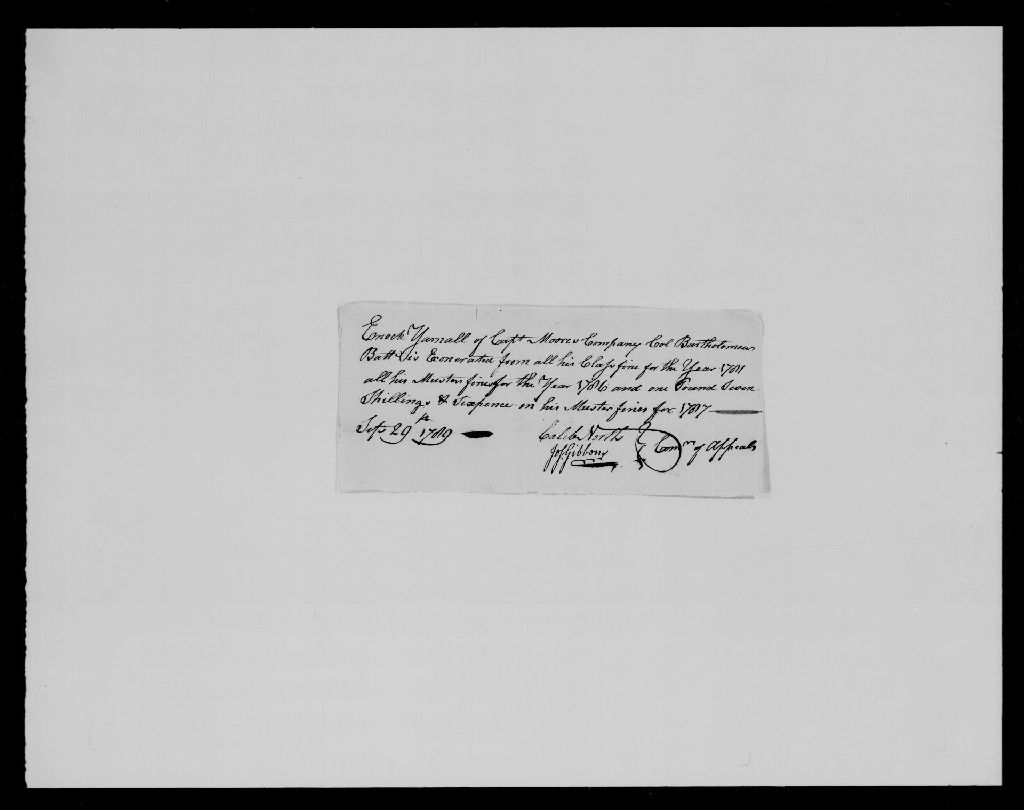 Enoch Yarnall of Capt Moores Company Col Bartholomews
Batt is Exonerated from all his Class fine for the Year 1781
all his Muster fines for the Year 1786 and one Pound Seven
Shillings & Sixpence on his Muster fines for 1787
Sept 29th 1789
Caleb North
Jos Gibbons } Comrs of Appeals